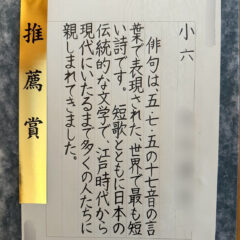 小六
俳句は、五・七・五の十七音の言
葉で表現された、世界で最も短
い詩です。短歌とともに日本の
伝統的な文学で、江戸時代から
現代にいたるまで多くの人たちに
親しまれてきました。
推薦賞